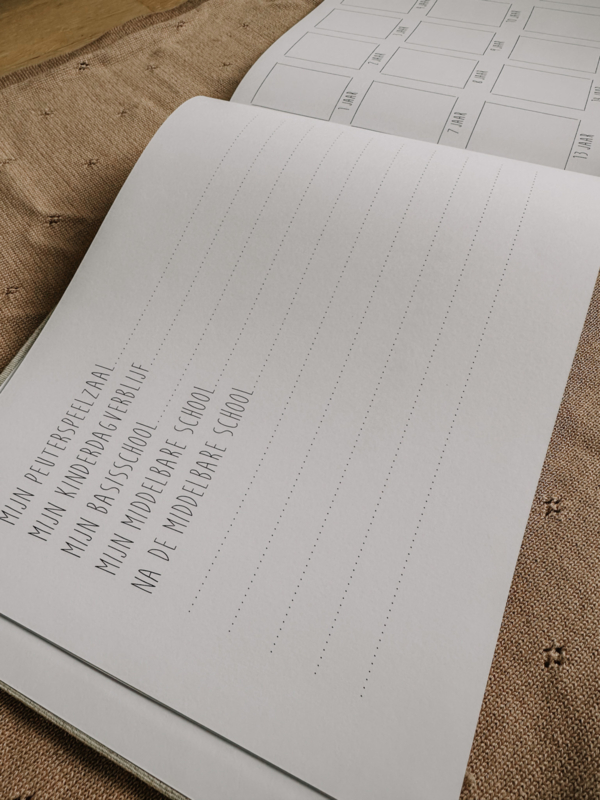 MIJN PEUTERSPEELZAAL
MIJN KINDERDAGVERBLIJF
MIJN BASISSCHOOL
MIJN MIDDELBARE SCHOOL
NA DE MIDDELBARE SCHOOL
1 JAAR
7 JAAR
13 JAAR
2 JAAR
8 JAAR